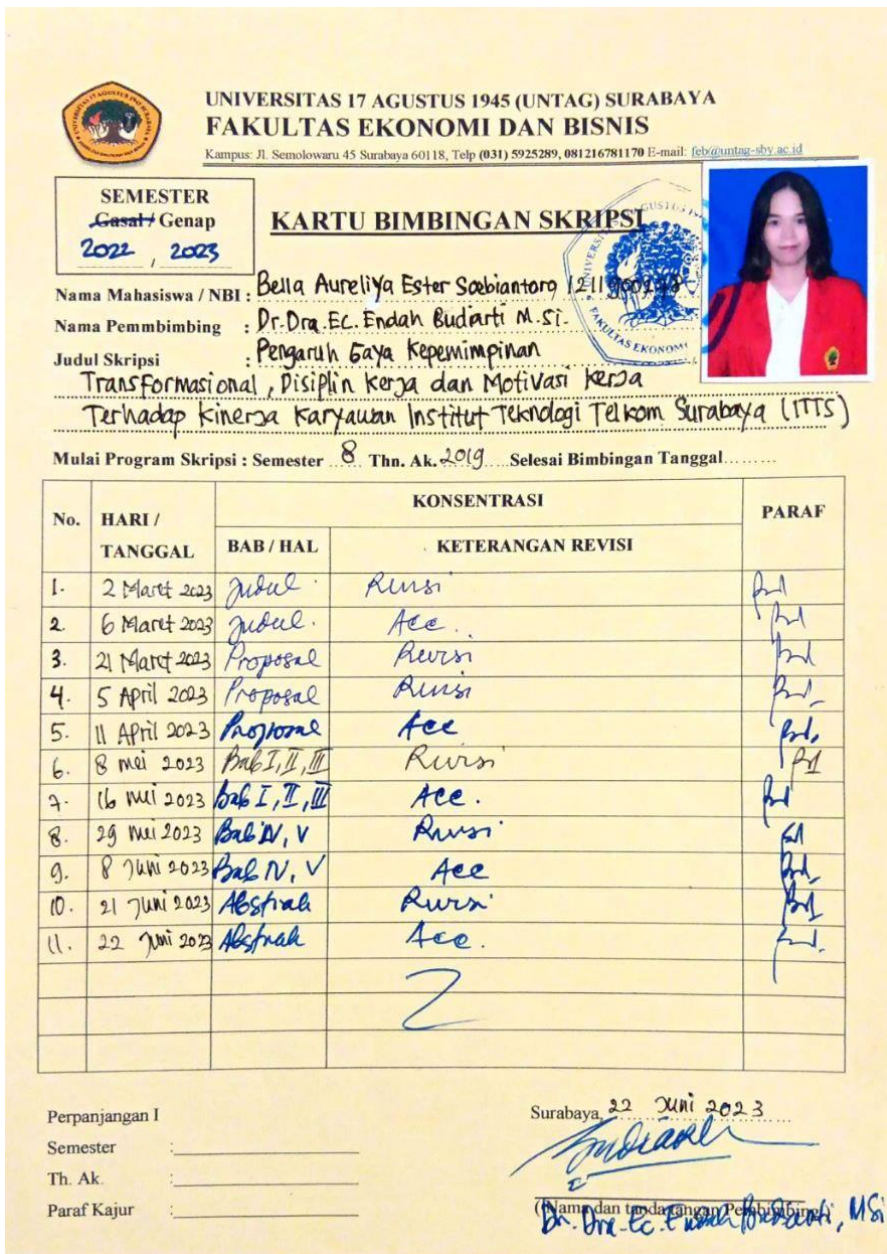 UNIVERSITAS 17 AGUSTUS 1945 (UNTAG) SURABAYA
FAKULTAS EKONOMI DAN BISNIS
Kampus: Jl. Semolowaru 45 Surabaya 60118, Telp (031) 5925289, 081216781170 E-mail: feb@untag-sby.ac.id
SEMESTER
Gasal / Genap
2022 , 2023
KARTU BIMBINGAN SKRIPSI
Nama Mahasiswa / NBI : Bella Aureliya Ester Soebiantoro
Nama Pemmbimbing : Dr. Dra. Ec. Endah Budiarti M.Si.
Judul Skripsi : Pengaruh Gaya Kepemimpinan
Transformasional, Disiplin Kerja dan Motivasi Kerja
Terhadap Kinerja Karyawan Institut Teknologi Telkom Surabaya (ITTS)
Mulai Program Skripsi : Semester 8 Thn. Ak. 2019 Selesai Bimbingan Tanggal.........
No. HARI / TANGGAL KONSENTRASI PARAF
BAB / HAL KETERANGAN REVISI
1. 2 Maret 2023 Judul Revisi
2. 6 Maret 2023 Judul. Acc.
3. 21 Maret 2023 Proposal Revisi
4. 5 April 2023 Proposal Revisi
5. 11 April 2023 Proposal Acc
6. 8 mei 2023 Bab I, II, III Revisi
7. 16 mei 2023 Bab I, II, III Acc.
8. 29 mei 2023 Bab IV, V Revisi
9. 8 Juni 2023 Bab IV, V Acc
10. 21 Juni 2023 Abstrak Revisi
11. 22 Juni 2023 Abstrak Acc.
Perpanjangan I
Semester :
Th. Ak. :
Paraf Kajur :
Surabaya, 22 Juni 2023
(Nama dan tanda tangan Pembimbing)
Dr. Dra. Ec. Endah Budiarti, MSi